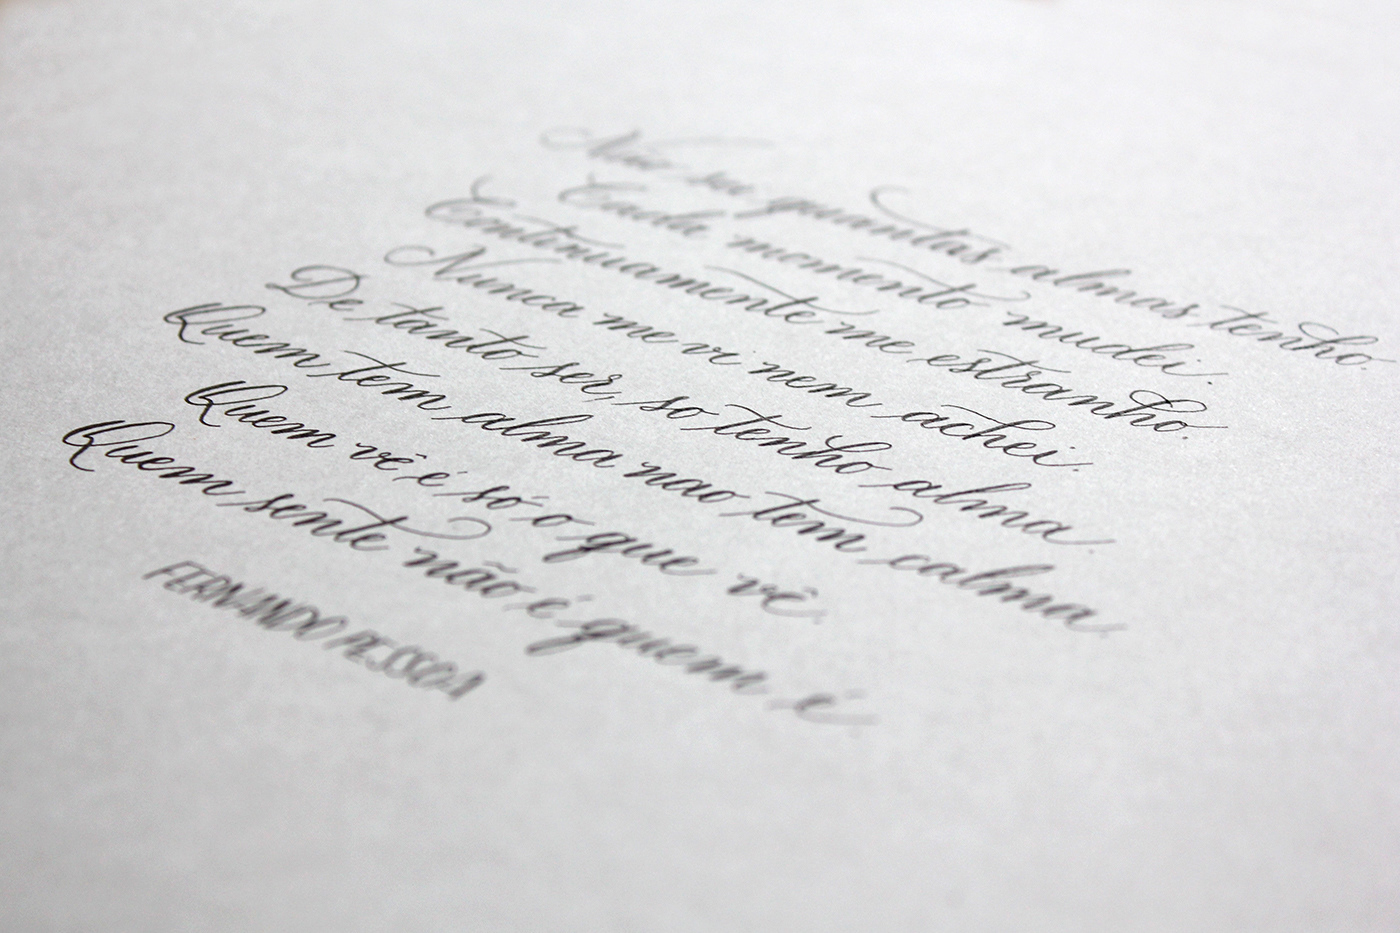 Não sei quantas almas tenho.
Cada momento mudei.
Continuamente me estranho.
Nunca me vi nem achei.
De tanto ser, so tenho alma.
Quem tem alma nao tem calma.
Quem vê é só o que vê.
Quem sente não é quem é.
FERNANDO PESSOA